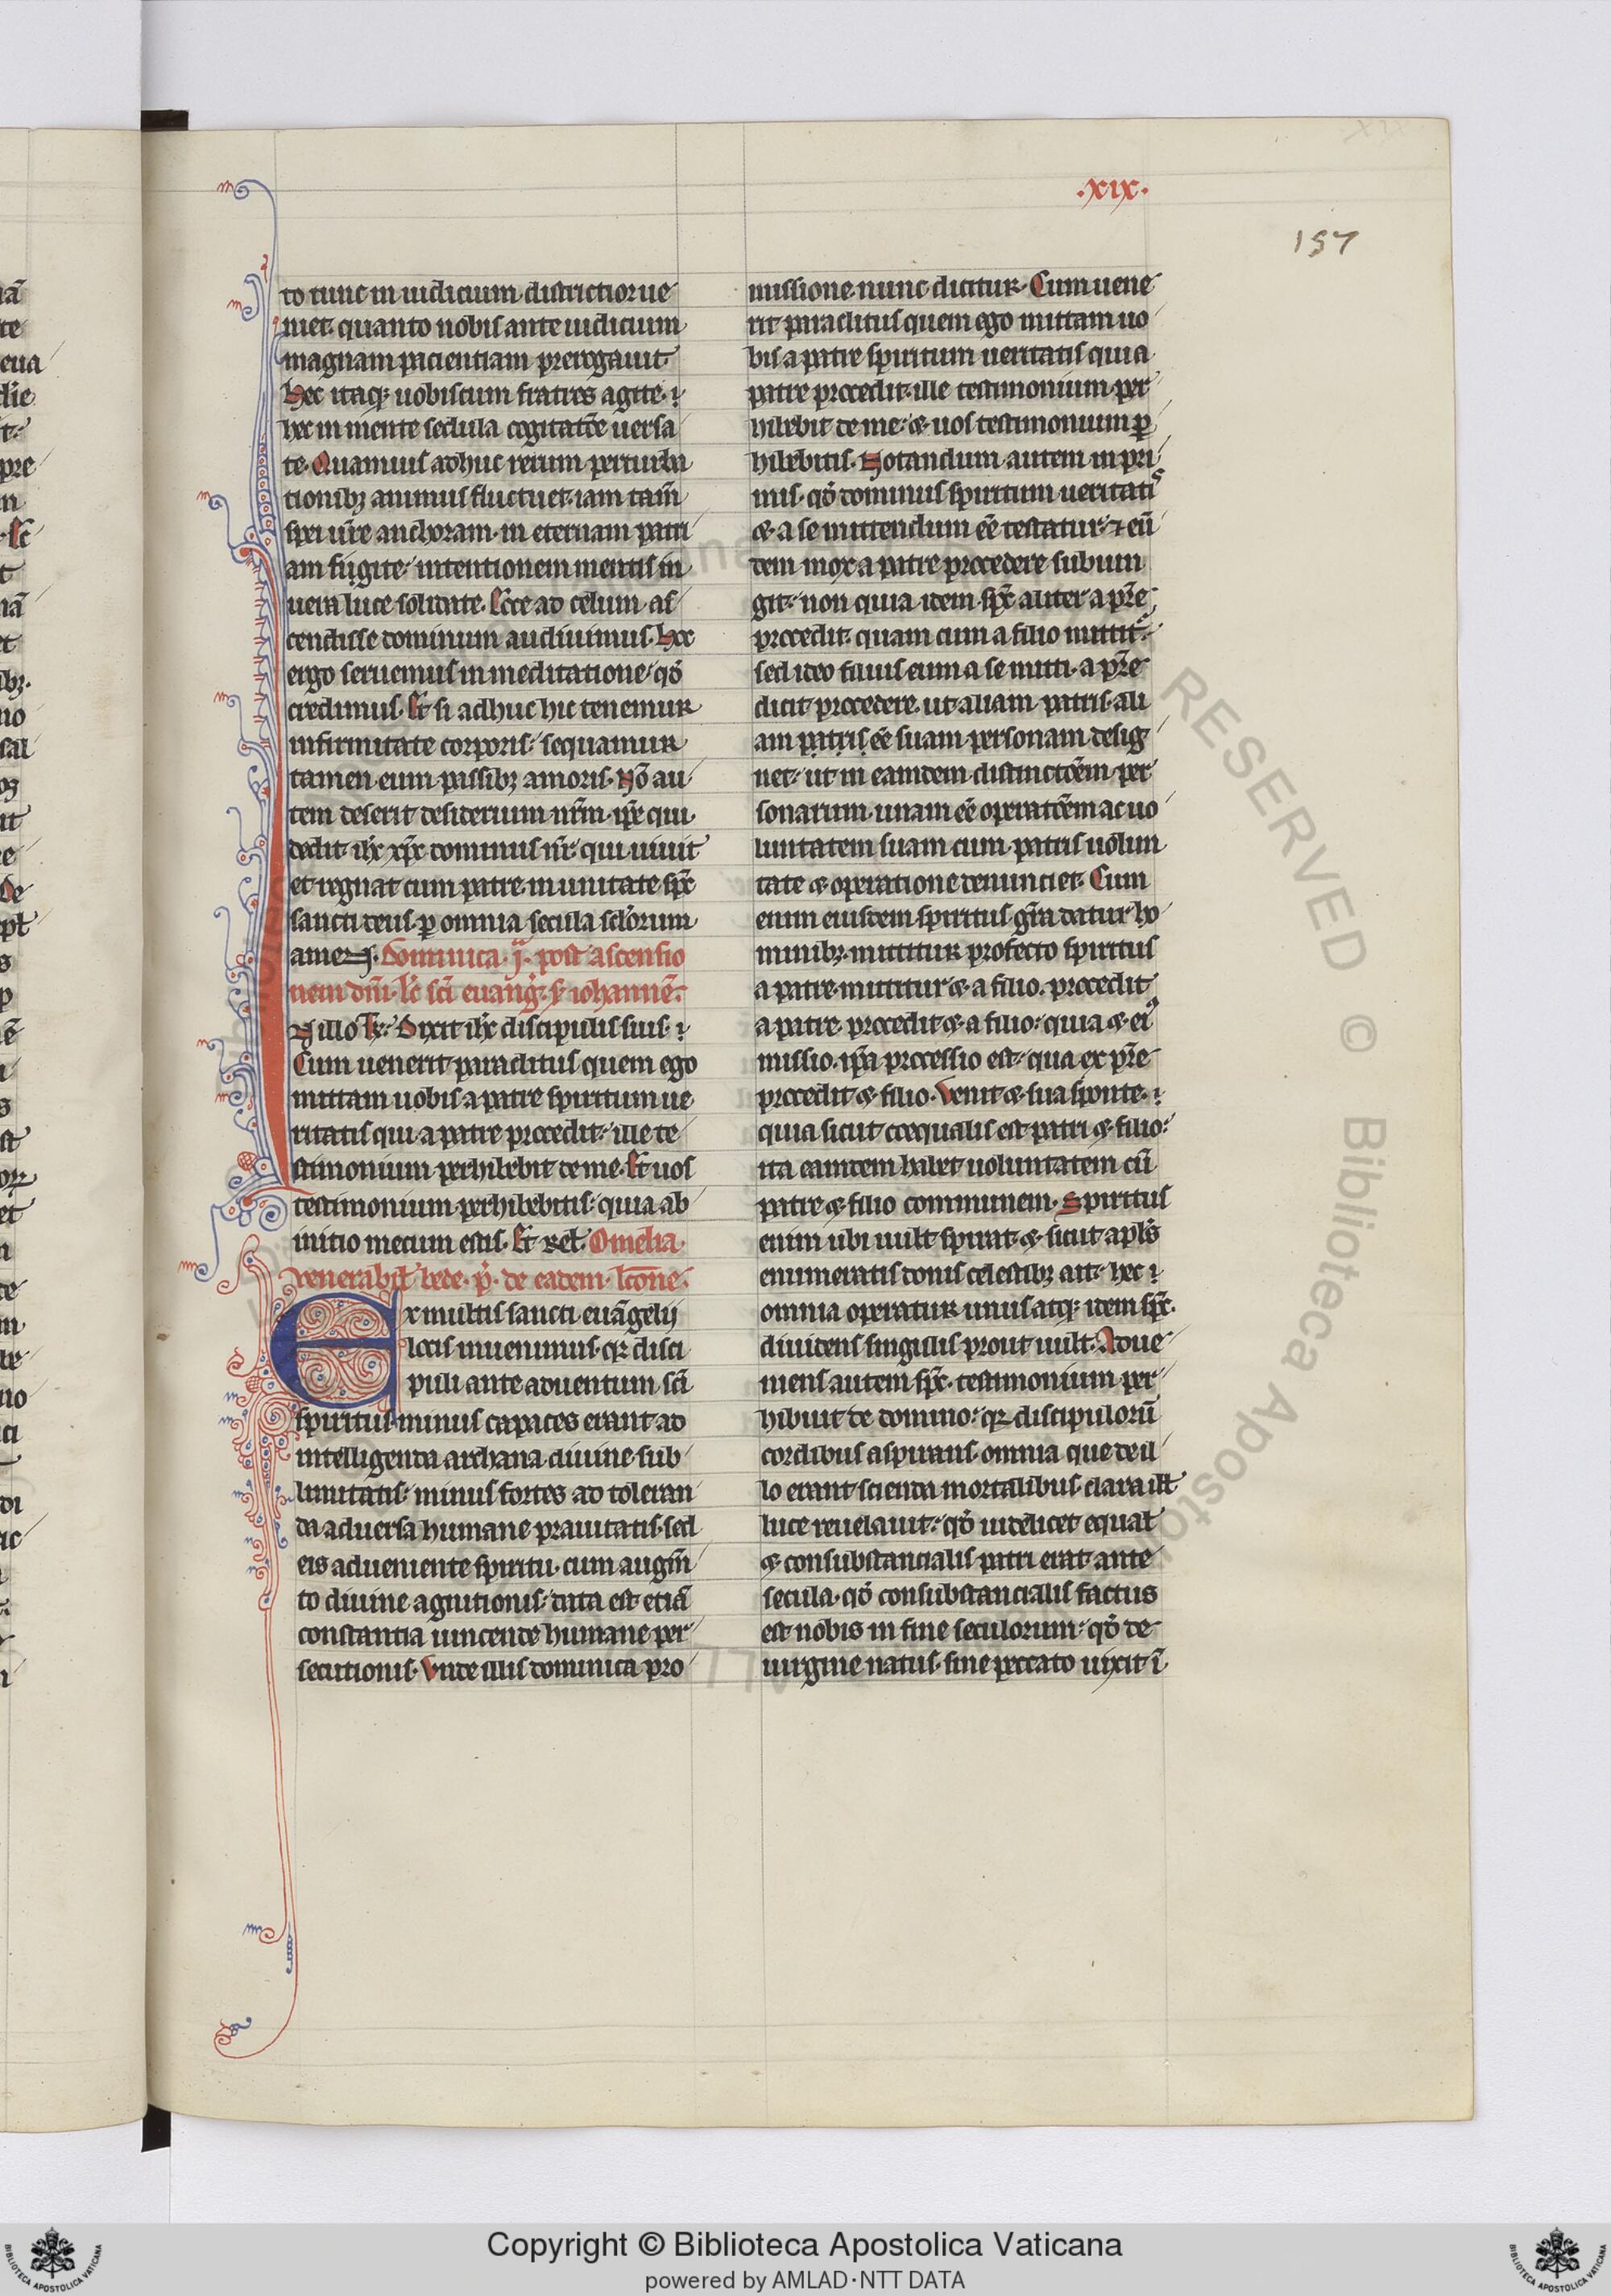 .xix.
157
to tunc in iudicium districtior ue
niet. quanto nobis ante iudicium
magnam pacientiam prerogauit.
Hec itaq; uobiscum fratres agite. ⁊
hec in mente sedula cogitatōe uersa
te. Quamuis adhuc rerum perturba
tionibȝ animus fluctuet. iam tam̄
spei ur̄e anchoram. in eternam patri
am figite. intentionem mentis in
uera luce solidate. Ecce ad celum as
cendisse dominum audiuimus. Hoc
ergo seruemus in meditatione qd̓
credimus. Et si adhuc hic tenemur
infirmitate corporis. sequamur
tamen eum passibȝ amoris. Nō au
tem deserit desiderium nr̄m. ip̄e qui
dedit. ih̄c xp̄c dominus nr̄. qui uiuit
et regnat cum patre in unitate sp̄c
sancti deus. p̱ omnia secula sclo̓rum
amen. Dominica .j.ª post ascensio
nem dn̄i. lc̄ sc̄i euang̓. s̄. iohannē.
N illo t̄. Dixit ih̄c discipulis suis. ⁊
Cum uenerit paraclitus quem ego
mittam uobis a patre spiritum ue
ritatis qui a patre procedit. ille te
stimonium perhibebit de me. Et uos
testimonium perhibebitis. quia ab
initio mecum estis. Et rel̄. Omelia.
venerabil̄ bede. p̓. de eadem. lc̄one.
Ex multis sancti euāgelij
locis inuenimus. qꝛ disci
puli ante aduentum sc̄i
spiritus minus capaces erant ad
intelligenda archana diuine sub
limitatis. minus fortes ad toleran
da aduersa humane prauitatis. sed
eis adueniente spiritu. cum augm̄
to diuine agnitionis. data est etiā
constantia uincende humane per
secutionis. Vnde illis dominica pro
missione nunc dicitur. Cum uene
rit paraclitus quem ego mittam uo
bis a patre spiritum ueritatis qui a
patre procedit. ille testimonium per
hibebit de me. & uos testimonium p̱
hibebitis. Notandum autem in pri
mis. qd̓ dominus spiritum ueritatis
& a se mittendum ēē testatur. ⁊ eū
dem mox a patre procedere subiun
git. non quia idem sp̄c aliter a pr̄e
procedit. quam cum a filio mittit᷑.
sed ideo filius eum a se mitti. a pr̄e
dicit procedere. ut aliam patris. ali
am patris ēē suam personam desig
net. ut in eamdem distinctōem per
sonarum. unam ēē operatōem ac uo
luntatem suam cum patris uolun
tate & operatione denunciet. Cum
enim eiusdem spiritus gr̄a datur ho
minibȝ. mittitur profecto spiritus
a patre. mittitur & a filio. procedit
a patre. procedit & a filio. quia & eiꝰ
missio. ip̄a processio est. qua ex pr̄e
procedit & filio. Venit & sua sponte. ⁊
quia sicut coequalis est patri & filio.
ita eamdem habet uoluntatem cū
patre & filio communem. Spiritus
enim ubi uult spirat. & sicut apl̓s
enumeratis donis celestibȝ ait. hec ⁊
omnia operatur unus atq; idem sp̄c.
diuidens singulis prout uult. Adue
niens autem sp̄c. testimonium per
hibuit de domino. qꝛ discipulorū
cordibus aspirans. omnia que de il
lo erant scienda mortalibus. clara ill̄
luce reuelauit. qd̓ uidelicet equal̄
& consubstancialis patri erat ante
secula. qd̓ consubstancialis factus
est nobis in fine seculorum. qd̓ de
uirgine natus. sine peccato uixit ī
RESERVED © Biblioteca Apostolica
Copyright © Biblioteca Apostolica Vaticana
powered by AMLAD·NTT DATA
BIBLIOTECA APOSTOLICA VATICANA
BIBLIOTECA APOSTOLICA VATICANA